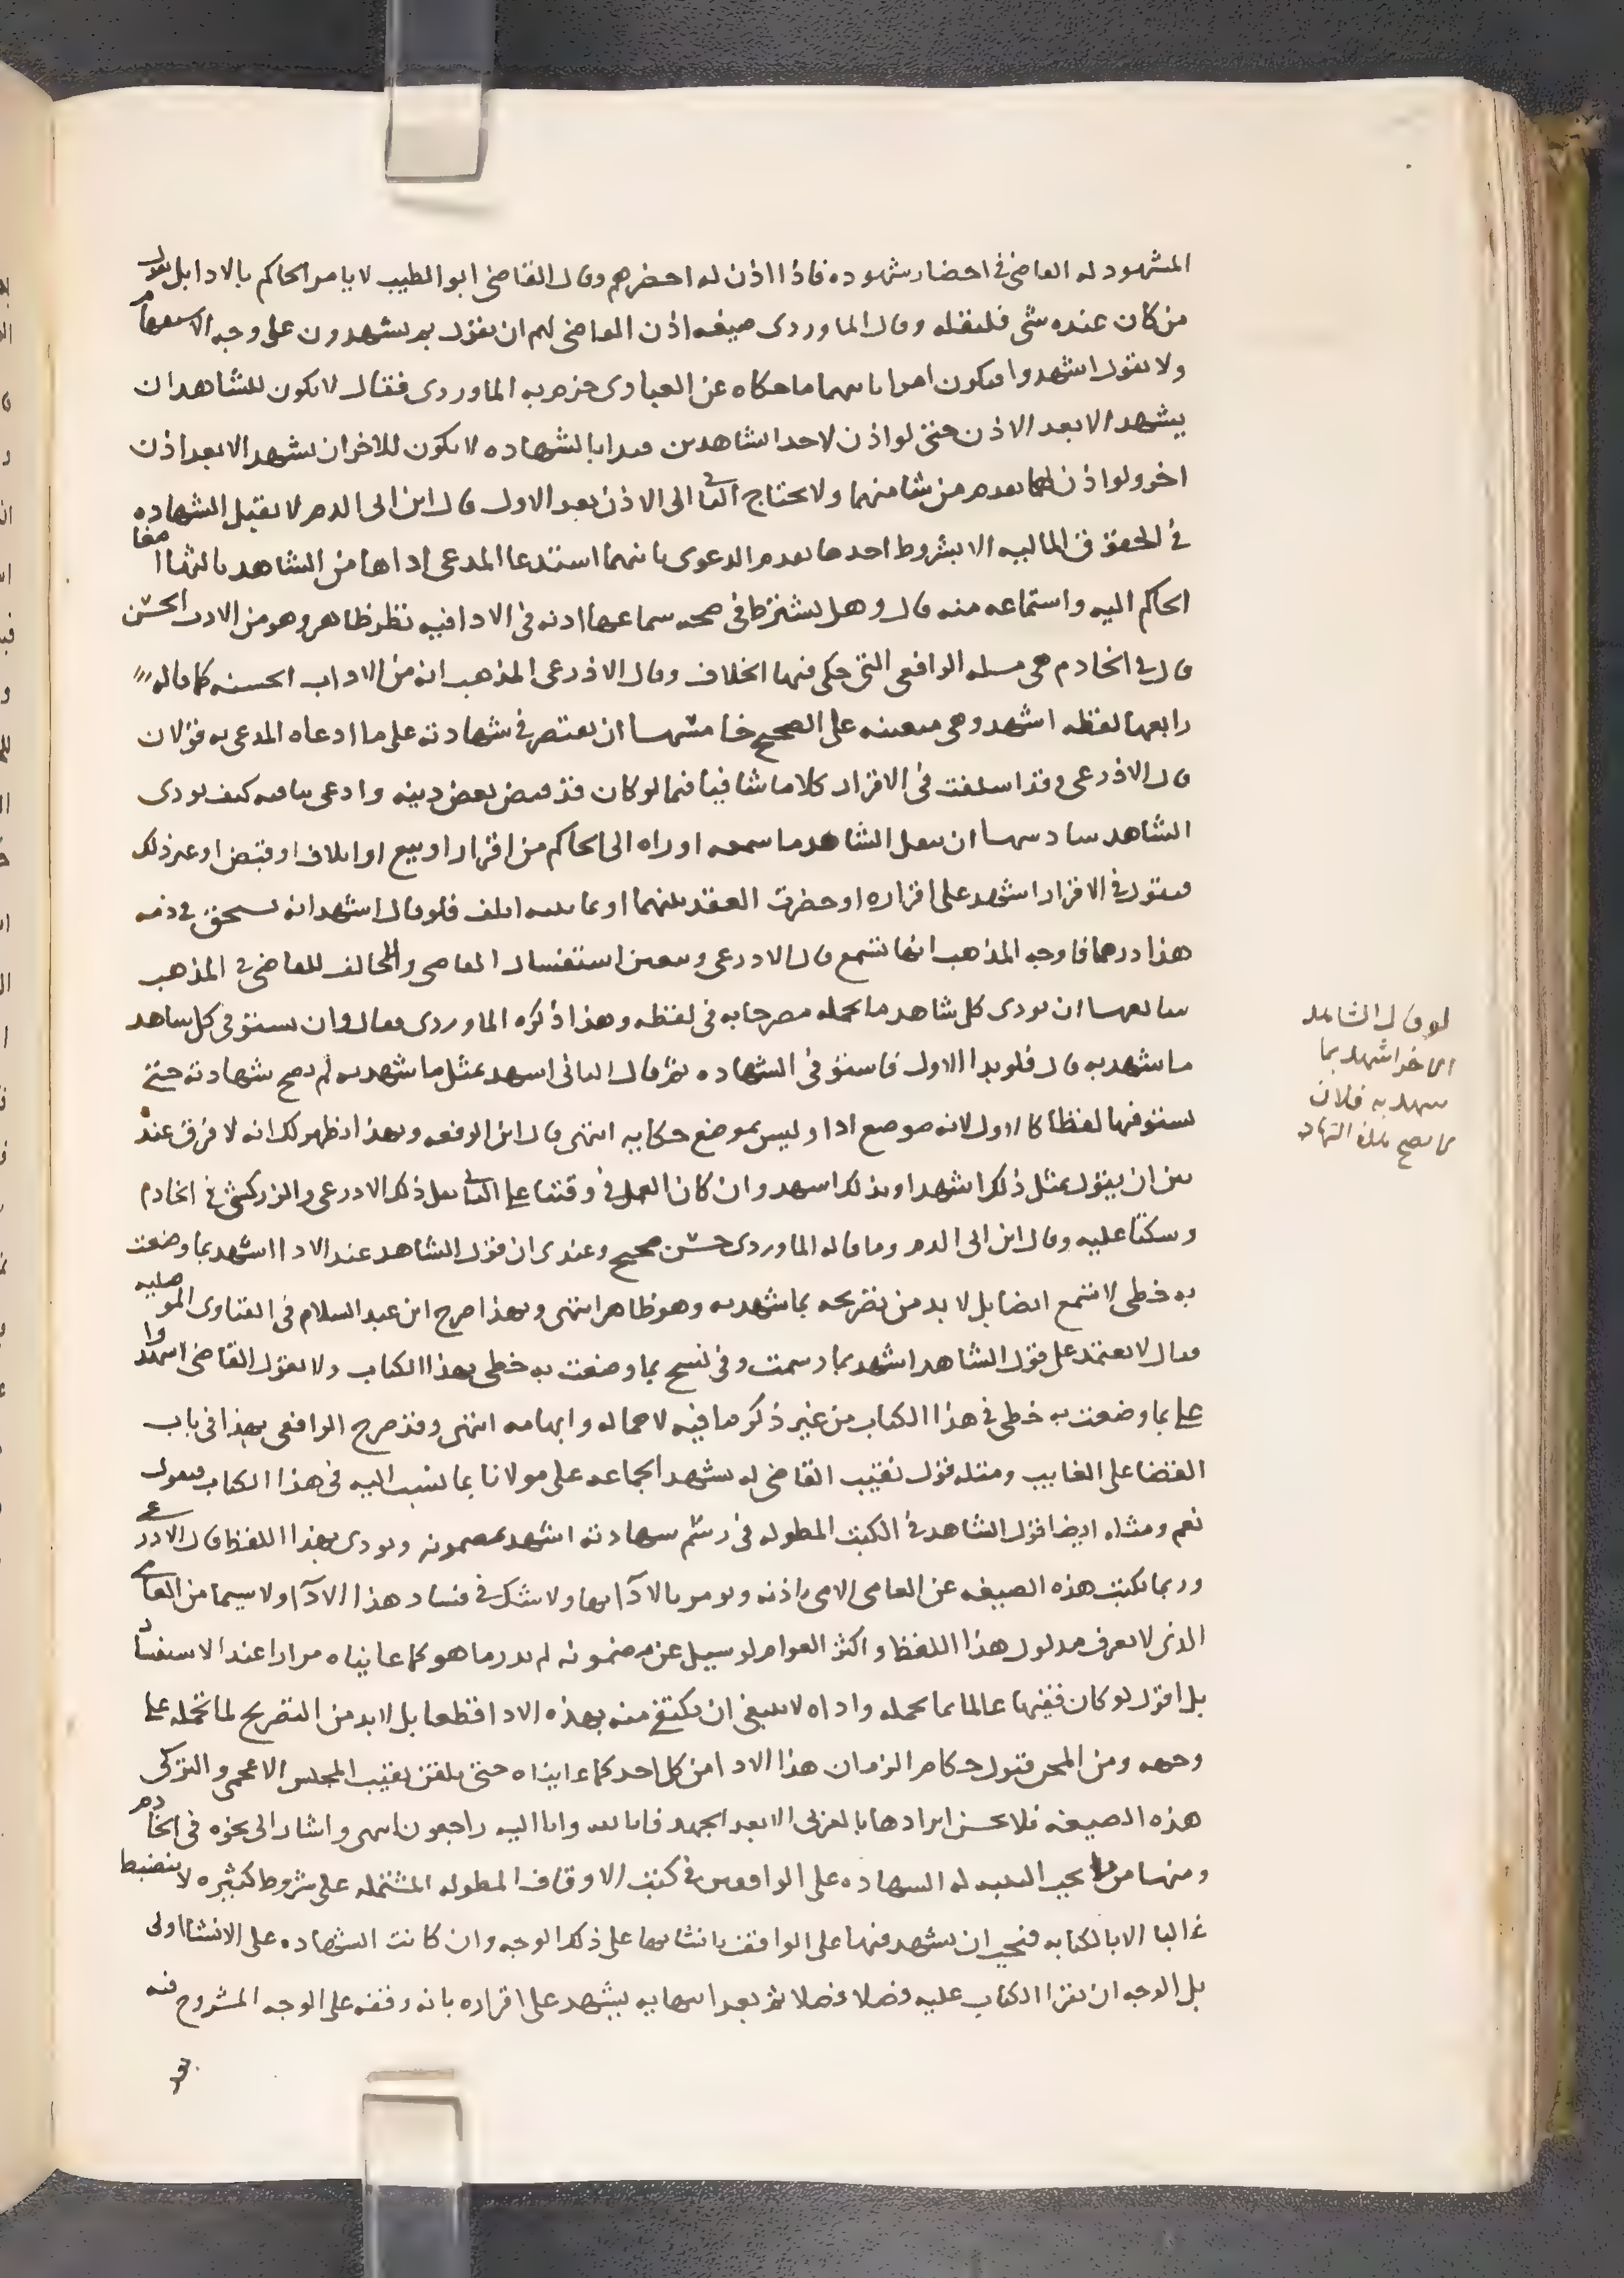 المشهود له القاضى فى احضار شهوده فاذا اذن له احضرهم وقال القاضى ابو الطيب لا يامر الحاكم بالادا بل يقول
من كان عنده شى فليقله وقال الماوردى صيغه اذن القاضى لهم ان يقول بم تشهدون على وجه الاستفهام
ولا يقول اشهدوا فيكون امرا ما حكاه عن العبادى جزم به الماوردى فقال لا يكون للشاهد ان
يشهد الا بعد الاذن حتى لو اذن لاحد الشاهدين فبدا بالشهاده لا يكون للاخر ان يشهد الا بعد اذن
اخر ولو اذن لهما تقدم من شا منهما ولا يحتاج الثانى الى الاذن بعد الاول قال ابن ابى الدم لا تقبل الشهاده
فى الحقوق الماليه الا بشروط احدها تقدم الدعوى ثانيها استدعا المدعى اداها من الشاهد ثالثها اصغا
الحاكم اليه واستماعه منه قال وهل يشترط فى صحه سماعها اذنه فى الادا فيه نظر ظاهر وهو من الادب الحسن
قال فى الخادم هى مسله الرافعى التى حكى فيها الخلاف وقال الاذرعى المذهب انه من الاداب الحسنه كما قاله
رابعها لفظه اشهد وهى متعينه على الصحيح خامسها ان يقتصر فى شهادته على ما ادعاه المدعى به قولان
قال الاذرعى وقد اسلفت فى الاقرار كلاما شافيا فيما لو كان قد قبض بعض دينه وادعى بباقيه كيف يودى
الشاهد سادسها ان ينقل الشاهد ما سمعه او راه الى الحاكم من اقرار او بيع او اتلاف او قبض او غير ذلك
فيقول فى الاقرار اشهد على اقراره او حضرت العقد بينهما او عاينته اتلف فلو قال اشهد انه يستحق فى ذمه
هذا درهما فاوجه المذهب انها تسمع قال الاذرعى ويتعين استفسار العامى والمخالف للقاضى فى المذهب
سابعها ان يودى كل شاهد ما تحمله مصرحا به فى لفظه وهذا ذكره الماوردى فقال وان يستوفى كل شاهد
ما شهد به قال فلو بدا الاول فاستوفى الشهاده ثم قال الثانى اشهد بمثل ما شهد به لم تصح شهادته حتى
يستوفيها لفظا كالاول لانه موضع ادا وليس بموضع حكايه انتهى قال ابن الرفعه وبهذا يظهر لك انه لا فرق عند
بين ان يقول بمثل ذلك اشهد او بذلك اشهد وان كان العمل فى وقتنا على الثانى نقل ذلك الاذرعى والزركشى فى الخادم
وسكتا عليه وقال ابن ابى الدم وما قاله الماوردى حسن صحيح وعندى ان قول الشاهد عند الادا اشهد بما وضعت
به خطى لا تسمع ايضا بل لا بد من تصريحه بما شهد به وهو ظاهر انتهى وبهذا صرح ابن عبد السلام فى الفتاوى الموصليه
فقال لا يعتمد على قول الشاهد اشهد بما رسمت وفى نسخ بما وضعت به خطى بهذا الكتاب ولا يقول القاضى اشهدوا
على بما وضعت به خطى فى هذا الكتاب من غير ذكر ما فيه لاحماله وابهامه انتهى وقد صرح الرافعى بهذا فى باب
القضا على الغايب ومثله قول نقيب القاضى له يشهد الجماعه على مولانا بما نسب اليه فى هذا الكتاب فيقول
نعم ومثله ايضا قول الشاهد فى الكتب المطوله فى رسم شهادته اشهد بمضمونه ويودى بهذا اللفظ قال الاذرعى
وربما يكتب هذه الصيغه عن العامى الامى باذنه ويومر بالادآ بها ولا شك فى فساد هذا الادآ ولا سيما من العامى
الذى لا يعرف مدلول هذا اللفظ واكثر العوام لو سيل عن مضمونه لم يدر ما هو كما عايناه مرارا عند الاستفسار
بل اقول لو كان فقيها عالما بما تحمله واداه لا ينبغى ان يكتفى منه بهذه الادا قطعا بل لا بد من التصريح لما تحمله على
وجهه ومن المحن قبول حكام الزمان هذا الادا من كل احد كما عايناه حتى يلقن نقيب المجلس الاعجمى والتركى
هذه الصيغه فلا يحسن ايرادها بالعربى الا بعد الجهد فانا لله وانا اليه راجعون انتهى واشار الى نحوه فى الخادم
ومنها من يجب التنبه له الشهاده على الواقفين فى كتب الاوقاف المطوله المشتمله على شروط كثيره لا تنضبط
غالبا الا بالكتابه فيجب ان يشهد فيها على الواقف بانشايها على ذلك الوجه وان كانت الشهاده على الانشا اولى
بل الوجه ان يقرا الكتاب عليه فصلا فصلا ثم بعد انتهايه يشهد على اقراره بانه وقفه على الوجه المشروح فيه
لو قال الشاهد
الاخر اشهد بما
شهد به فلان
لا تصح تلك الشهاده